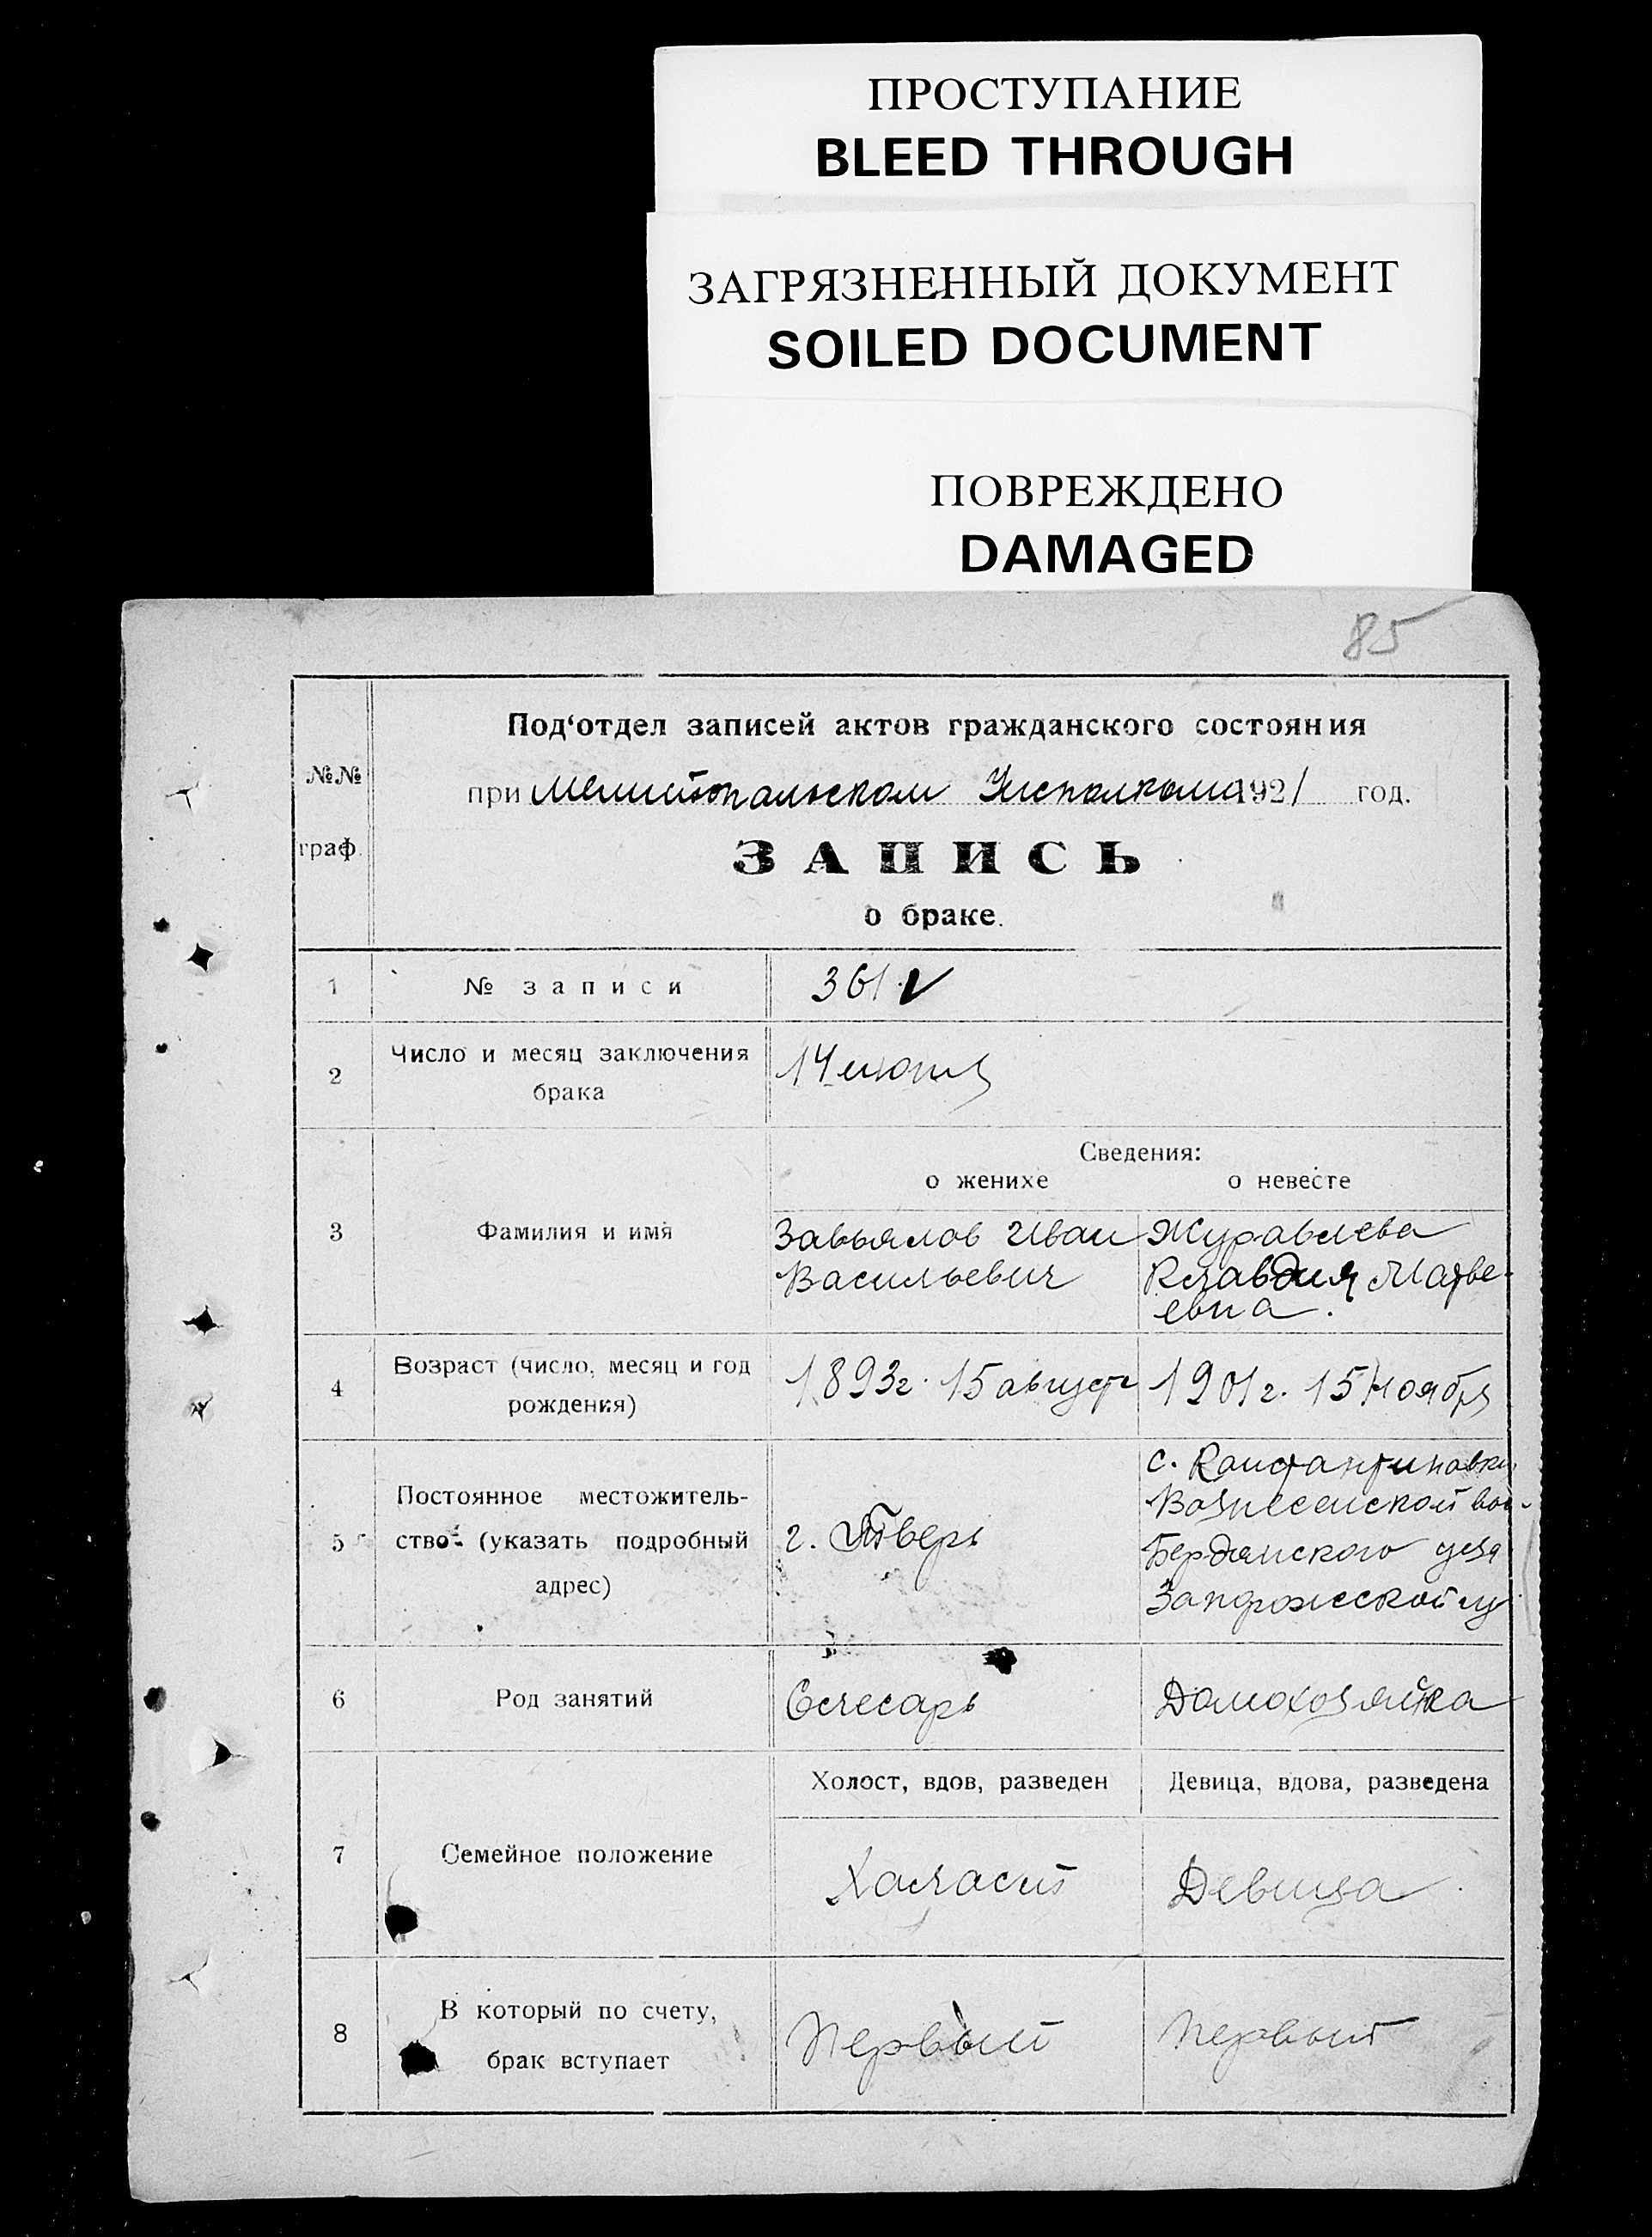 ПРОСТУПАНИЕ
BLEED THROUGH
ЗАГРЯЗНЕННЫЙ ДОКУМЕНТ
SOILED DOCUMENT
ПОВРЕЖДЕНО
DAMAGED
85
№№
граф.
Под‘отдел записей актов гражданского состояния
при Мелитопольском Исполкоме 1921 год.
ЗАПИСЬ
о браке.
1 № записи 361
2 Число и месяц заключения
брака
14 июня
Сведения:
о женихе о невесте
3 Фамилия и имя
Завьялов Иван
Васильевич
Журавлева
Клавдия Матве-
евна.
4 Возраст (число, месяц и год
рождения)
1893г. 15 август
1901г. 15 ноября
5 Постоянное местожитель-
ство- (указать подробный
адрес)
г. Тверь
с. Константиновки
Вознесенской вол.
Бердянского уезд
Запорожской гу
6 Род занятий Слесарь Домохозяйка
Холост, вдов, разведен Девица, вдова, разведена
7 Семейное положение Халаст Девица
8 В который по счету,
брак вступает
Первый первый